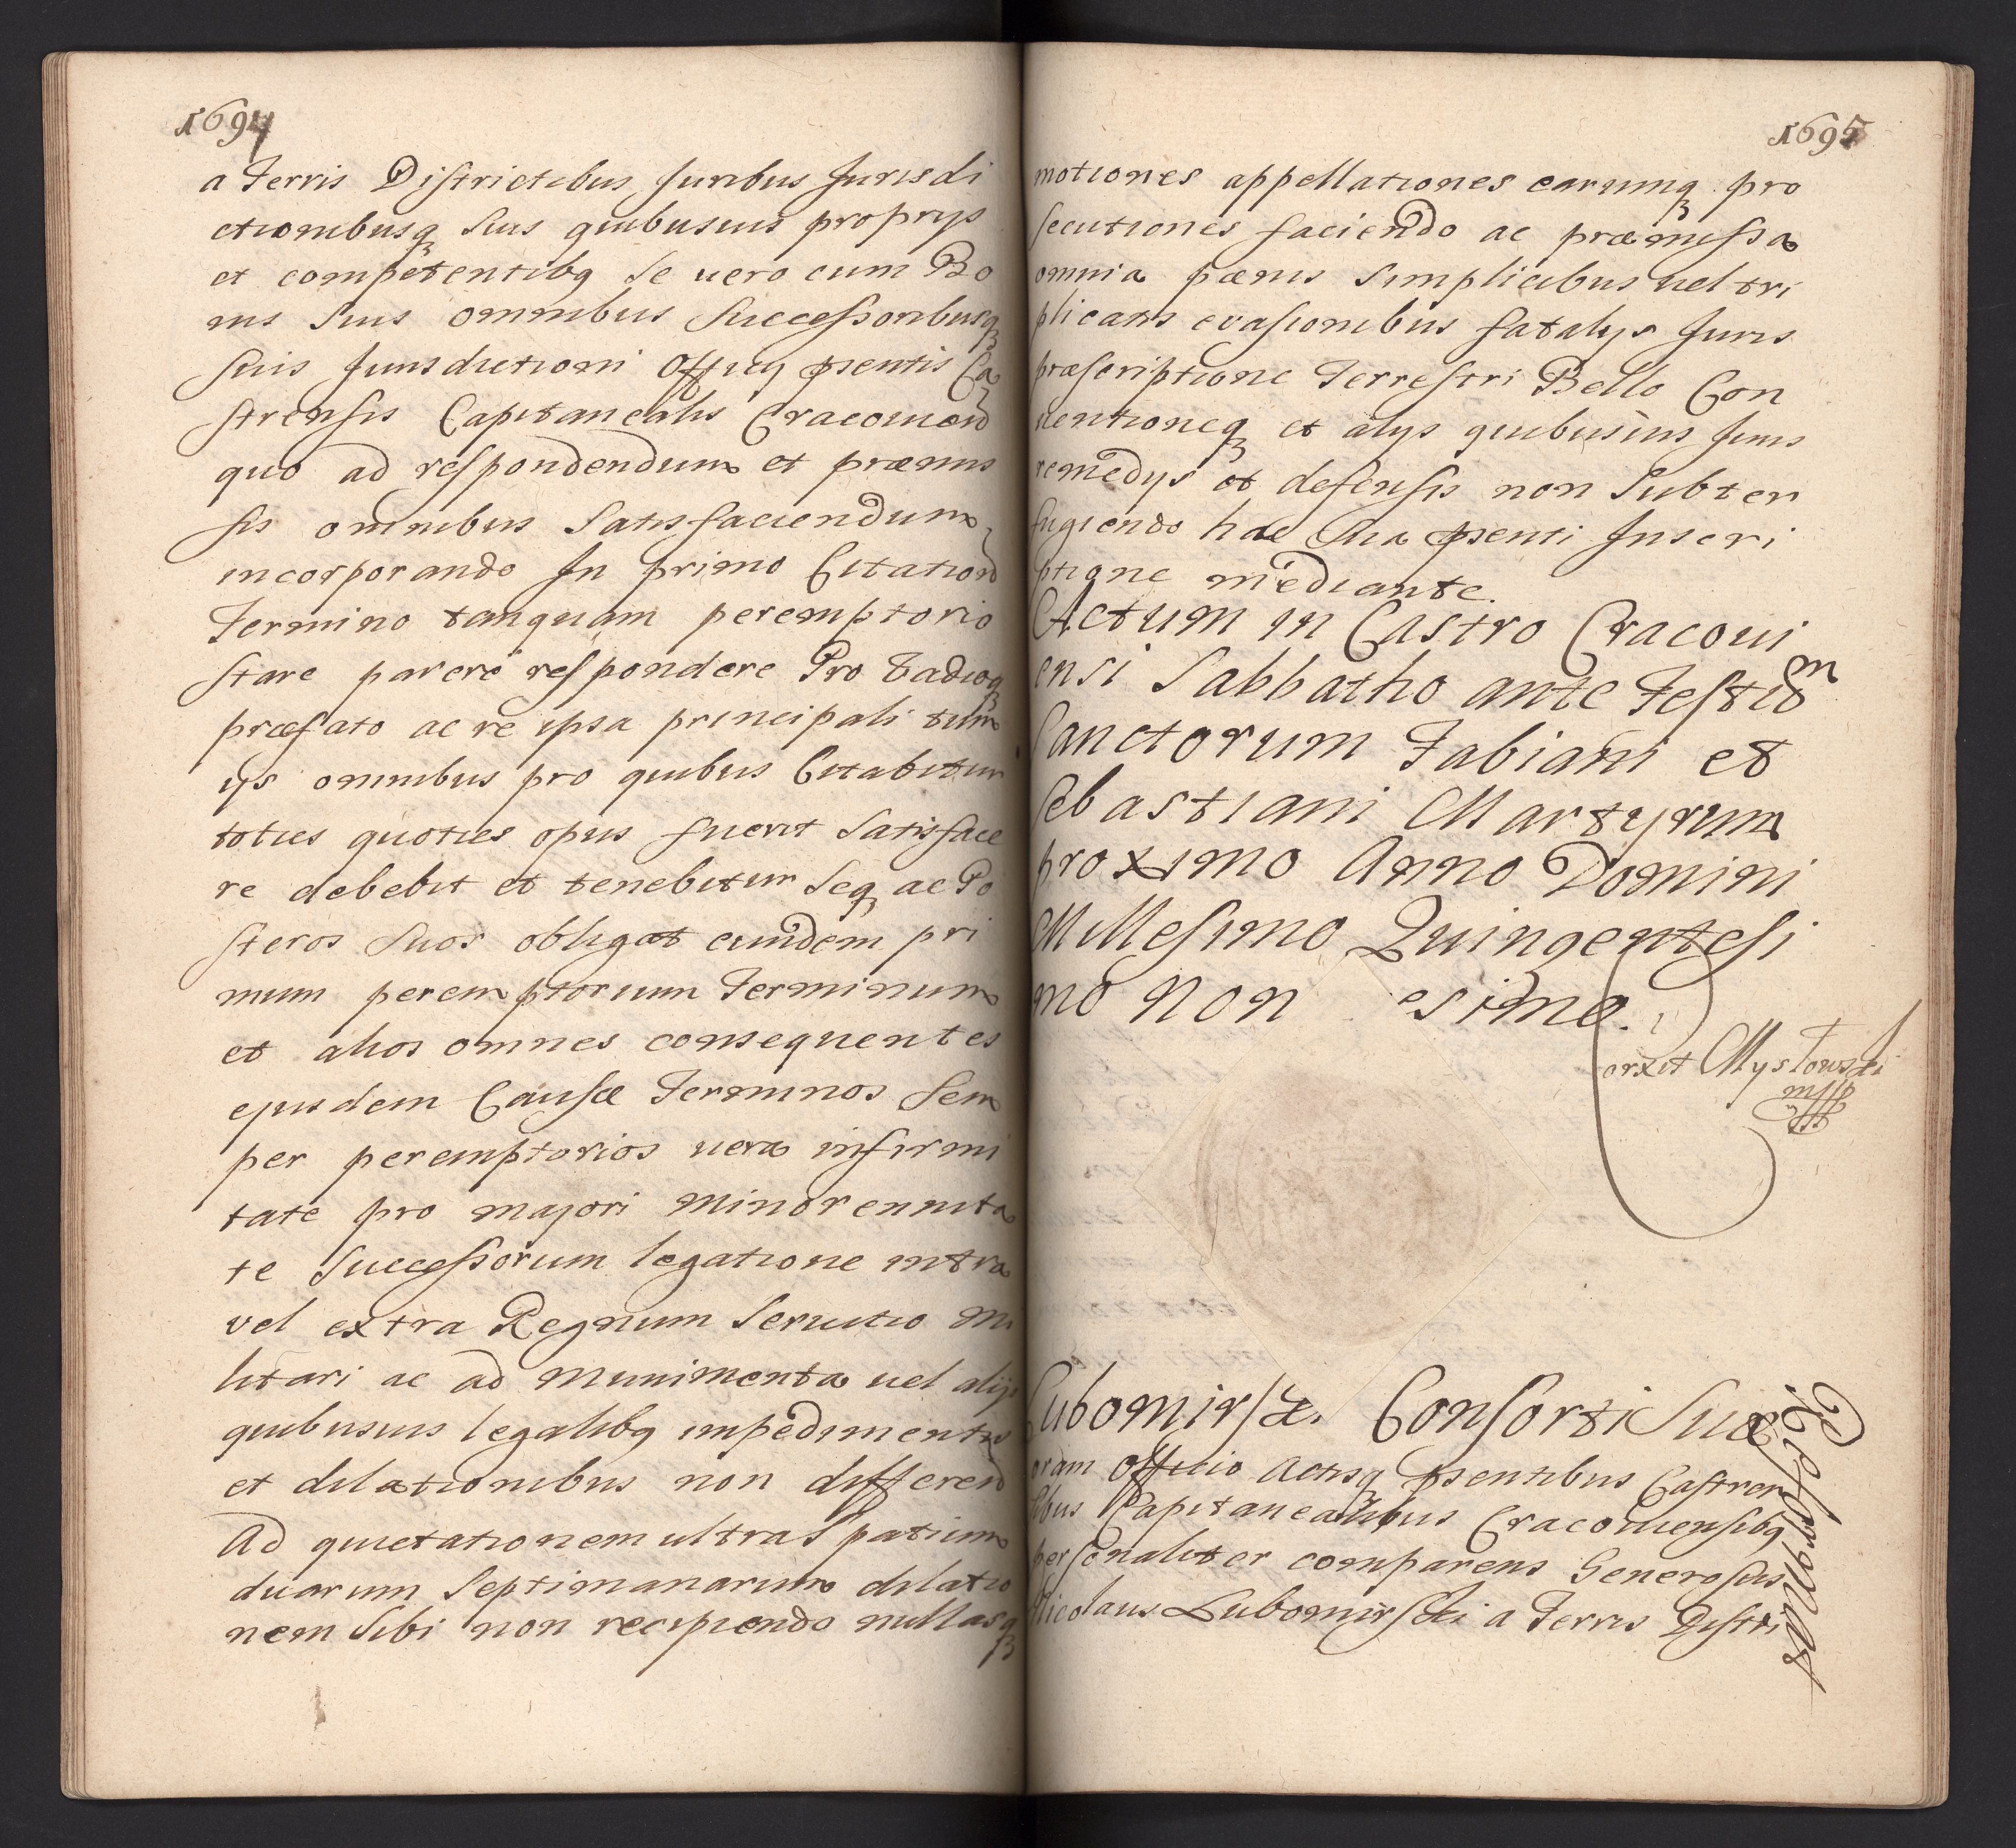 1694
a Terris Districtibus Juribus Jurisdi
ctionibusq suis quibusuis proprys
et competentibq se uero cum Bo
nis suis omnibus Successoribusq
suis Jurisdictioni Officy pñtis Ca
strensis Capitanealis Cracouien
quo ad respondendum et præmis
sis omnibus satisfaciendum
incorporando In primo Citation
Termino tanquam peremptorio
stare parere respondere Pro Vadioq
præfato ac re ipsa principali tum
ijs omnibus pro quibus Citabitur
toties quoties opus fuerit satisface
re debebit et tenebitur seq ac Po
steros suos obligat eundem pri
mum peremptorium Terminum
et alios omnes consequentes
ejusdem Causæ Terminos sem
per peremptorios uera infirmi
tate pro majori minorennita
te Successorum legatione intra
vel extra Regnum Seruitio mi
litari ac ad munimenta uel alijs
quibusuis legalibq impedimentis
et dilationibus non differend
Ad quietationem ultra spatium
duarum septimanarum dilatio
nem sibi non recipiendo nullasq
1695
motiones appellationes earumq pro
secutiones faciendo ac præmissa
omnia pænis simplicibus uel tri
plicatis euasionibus fatalys Juris
præscriptione Terrestri Bello Con
uentioneq et alys quibusuis Juris
remedys et defensis non subter
fugiendo hac sua pñti Inscri
ptione mediante.
Actum in Castro Cracoui
ensi Sabbatho ante Festum
Sanctorum Fabiani et
Sebastiani Martyrum
proximo Anno Domini
Millesimo Quingentesi
mo Non esimo.
orxit Mystowski
mpp
Lubomirski Consorti Suæ
Reformat
oram Officio Actisq pñtibus Castren
sibus Capitanealibus Cracouiensibq
personaliter comparens Generosus
Nicolaus Lubomirski a Terris Distri